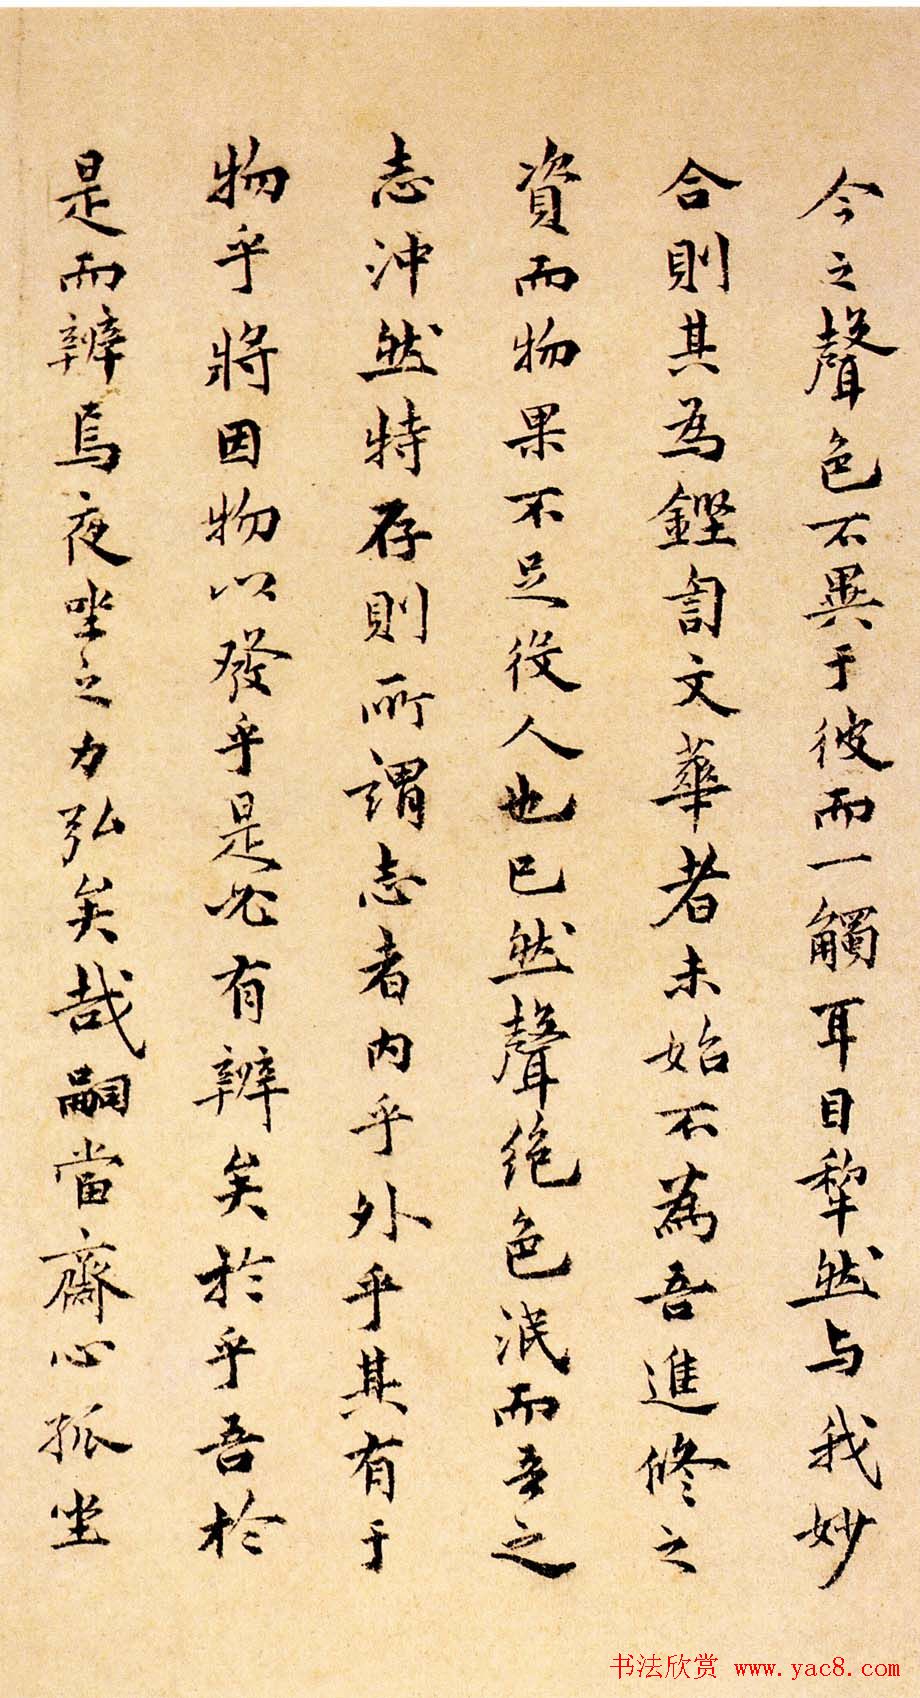 今之聲色不異于彼而一觸耳目犂然与我妙
合則其為鏗訇文華者未始不為吾進修之
資而物果不足役人也已然聲絕色泯而吾之
志沖然特存則所謂志者內乎外乎其有于
物乎將因物以發乎是必有辨矣於乎吾於
是而辨焉夜坐之力弘矣哉嗣當齋心孤坐
书法欣赏 www.yac8.com